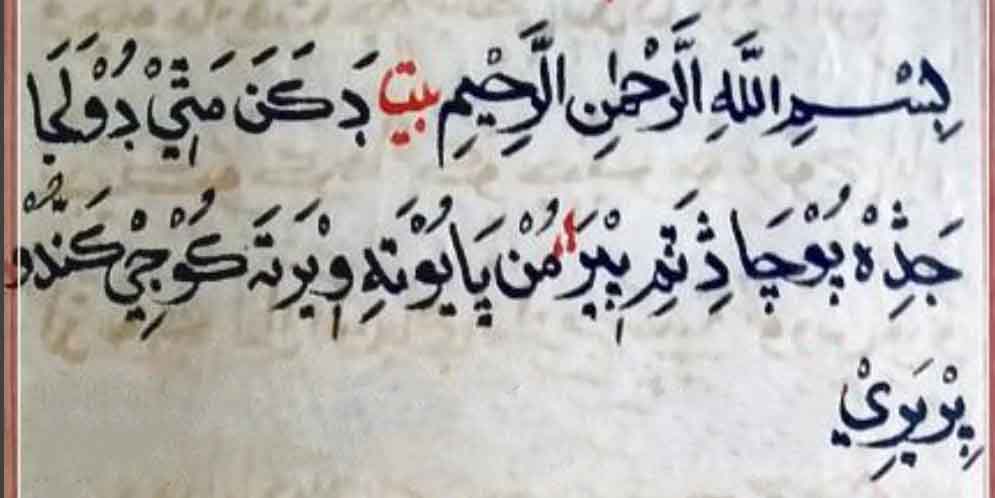 بِسْمِ اللَّهِ الرَّحْمٰنِ الرَّحِيْمِ بيت دِكَنَ مَتِيْ دُوْلَجَا
جَذِهْ بُوْچَا ذِتَمِ بِيْرَ مُنْ پَايُوْتَهِ وِيْرَتَه كُوْجِيْ